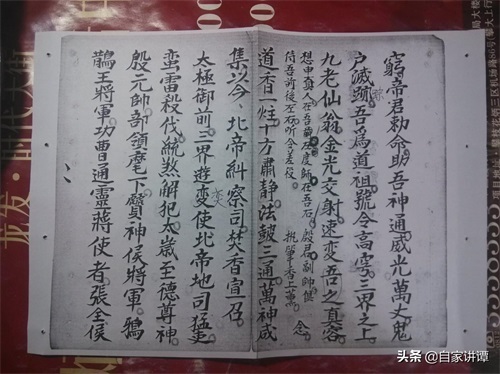 窮帝君勅命助吾神通威光萬丈鬼
滅吾爲道祖號令高穹三界之上
九老仙翁金光交射速變吾之真容
想申真人在吾左度師在吾右殷君副帥
待吾前後左右听令差役 香上 念
道香一炷十方肅静法鼓三通萬神咸
集以今北帝糾察司焚香宣召
太極御前三界遊變使北帝地司猛吏
蛮雷殺伐統煞解犯太歲至德尊神
殷元帥部領麾下神侯將軍鴉
鵲王將軍功曹通靈蔣使者張全侯
龙发·时代天街
头条 @自家讲谭